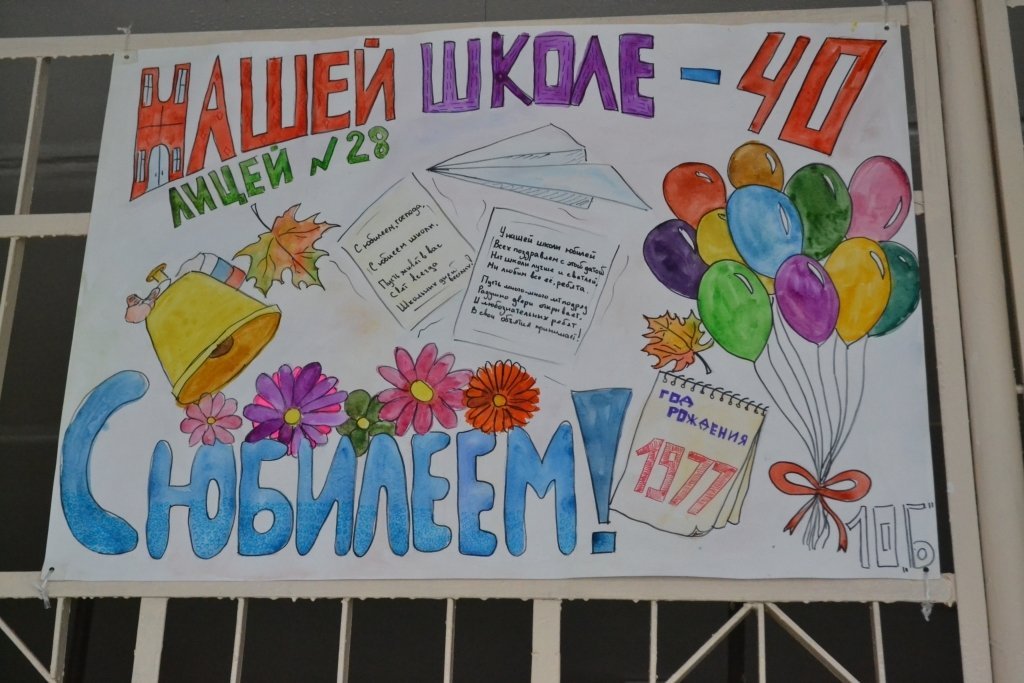 НАШЕЙ ШКОЛЕ - 40
ЛИЦЕЙ №28
С юбилеем, господа,
С юбилеем школы,
Пусть живёт в вас
Свет всегда
Школьных дней
весёлых!
У нашей школы юбилей
Всех поздравляем с этой датой
Нет школы лучше и светлей,
Мы любим все её, ребята
Пусть много-много лет подряд
Радушно двери открывает
И любознательных ребят
В свои объятия принимает!
С ЮБИЛЕЕМ!
ГОД
РОЖДЕНИЯ
1977
10„Б"